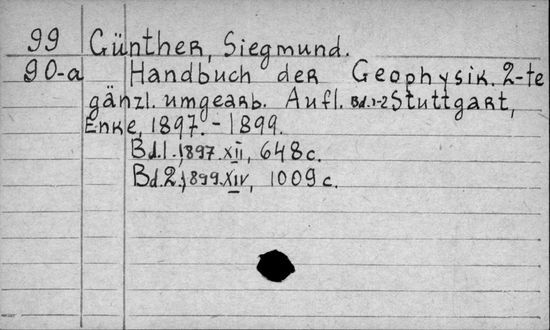 99 Günther, Siegmund.
90-a Handbuch der Geophysik. 2-te
gänzl. umgearb. Aufl. Bd.1-2 Stuttgart,
Enke, 1897.-1899.
Bd.1., 1897. XII, 648c.
Bd.2., 1899. XIV, 1009c.